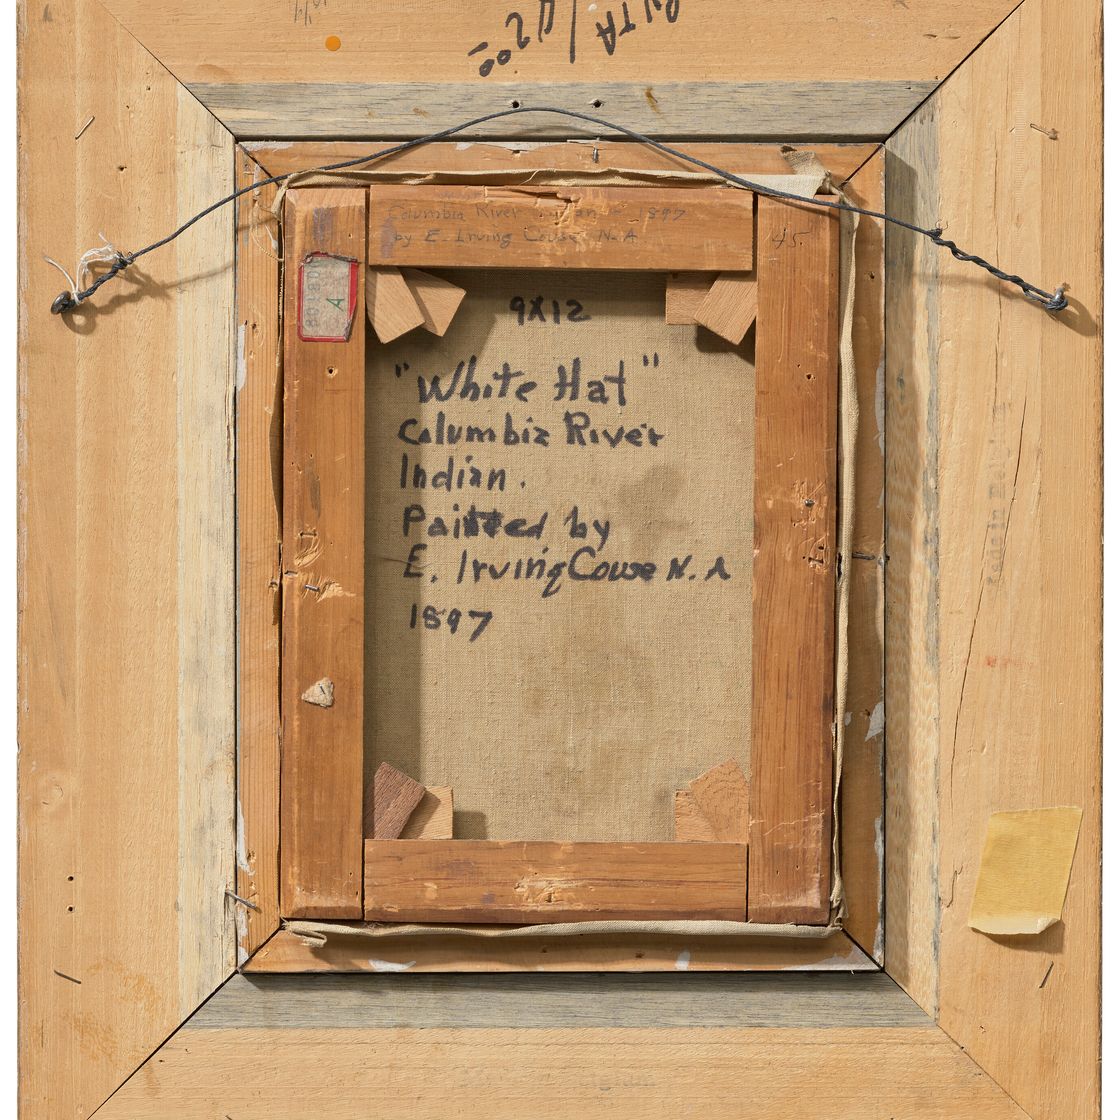 UTA/42⁰⁰
Columbia River Indian - 1897
by E. Irving Couse N.A.
45
80180
A
9X12
"White Hat"
Columbia River
Indian.
Painted by
E. Irving Couse N.A
1897
Made in